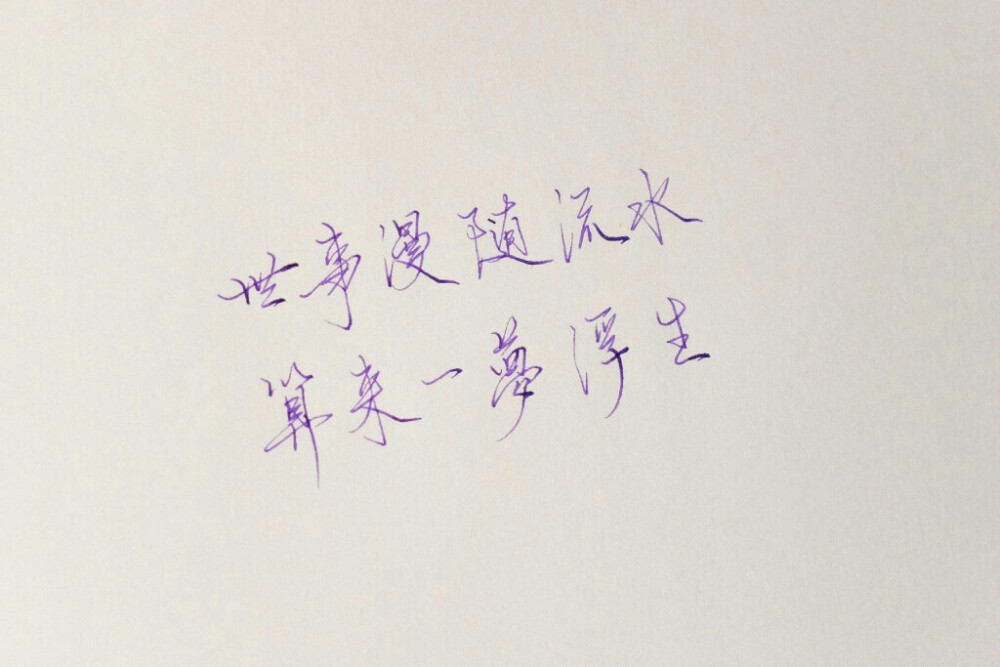 世事漫随流水
算来一夢浮生